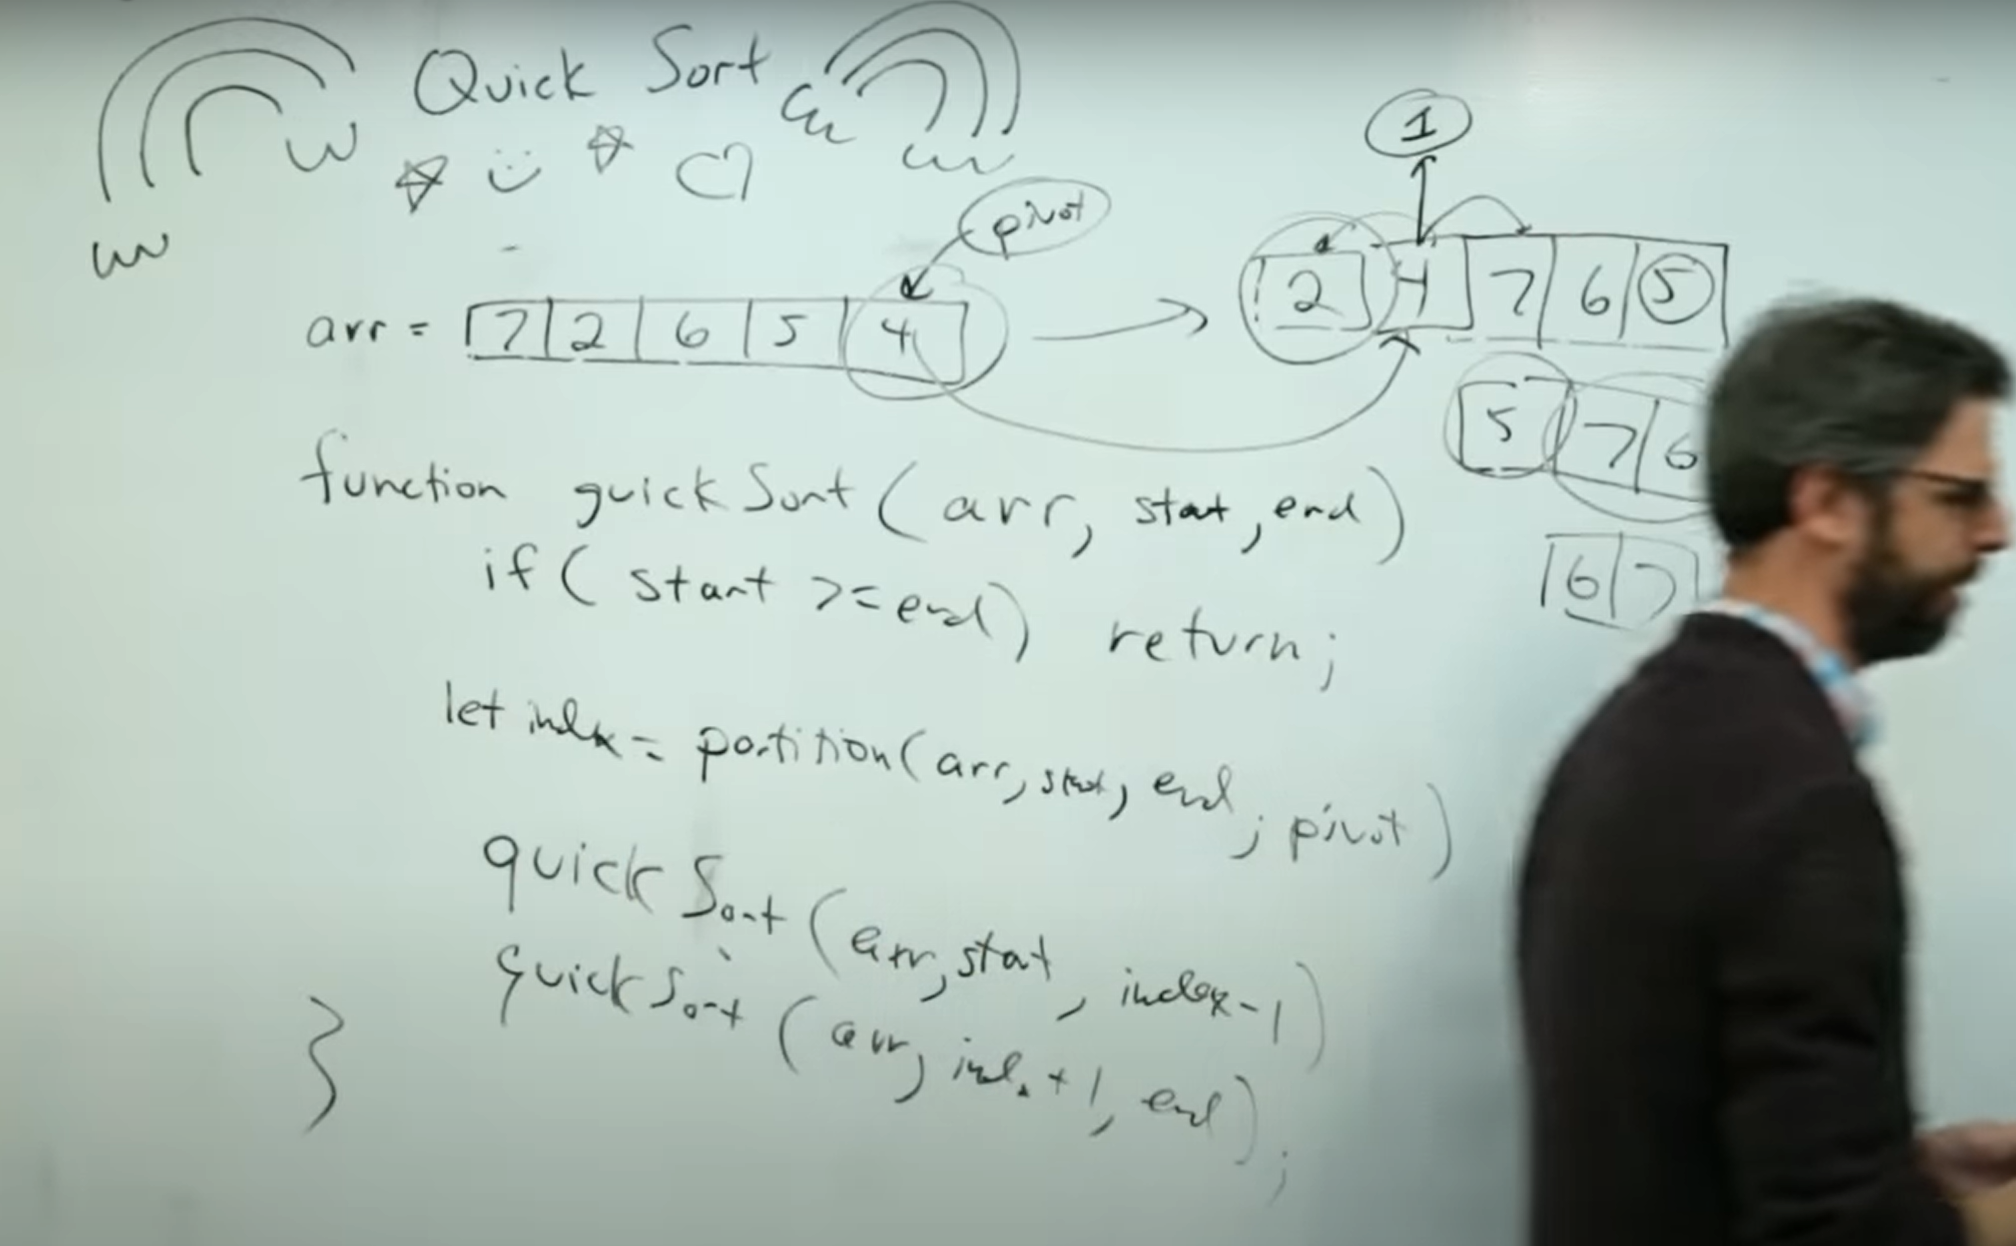 Quick Sort
pivot
1
arr = 7 2 6 5 4
2 4 7 6 5
5 7 6
6 7
function quickSort(arr, start, end)
if( start >= end) return;
let index = partition(arr, start, end, pivot)
quickSort(arr, start, index-1)
quickSort(arr, index+1, end);
}